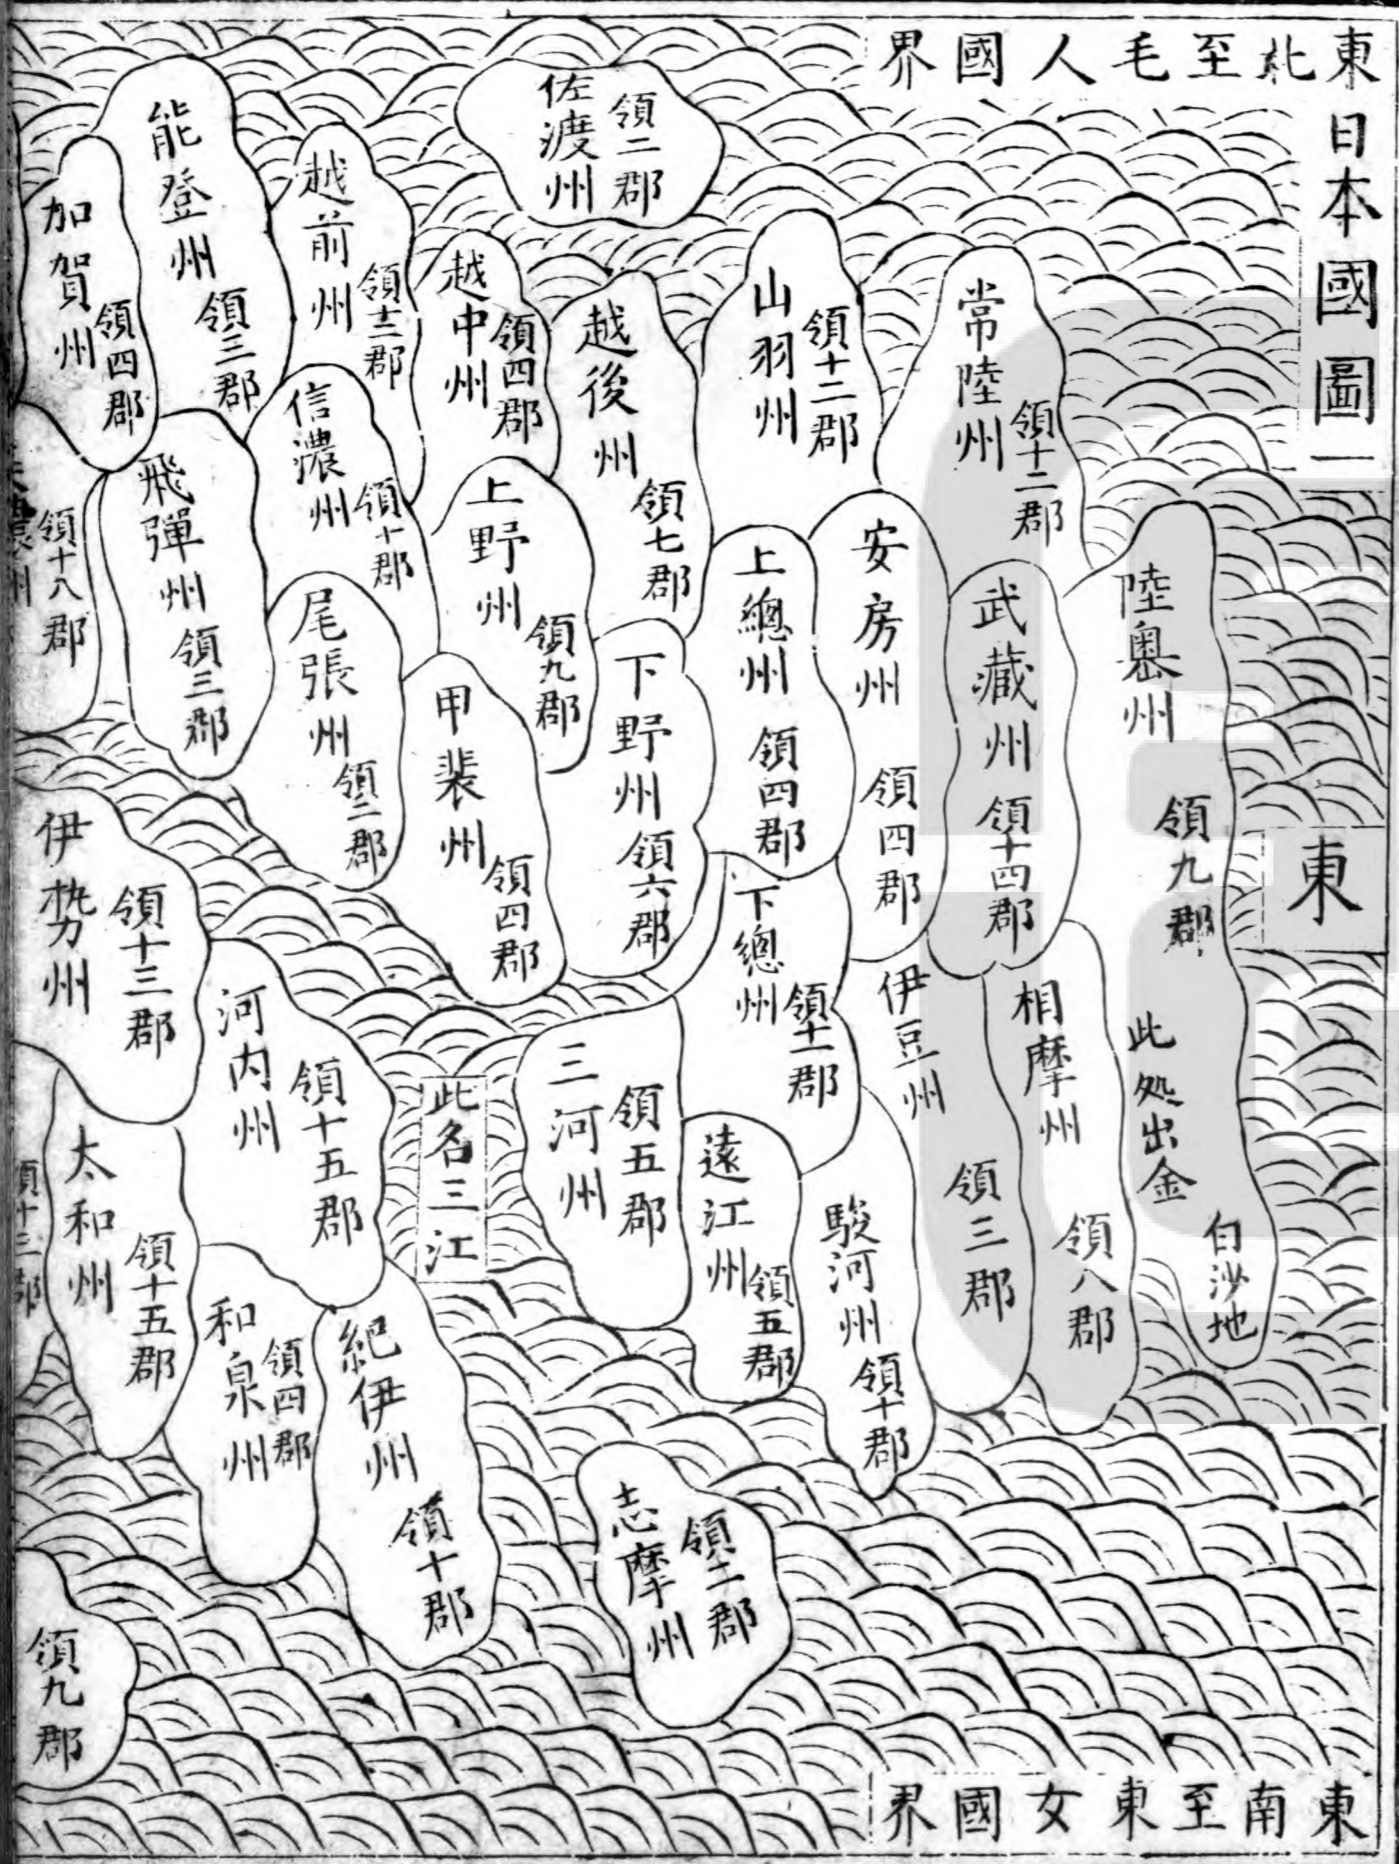 東北至毛人國界
日本國圖一
東
東南至東女國界
陸奧州
領九郡
此処出金
白沙地
常陸州
領十二郡
武藏州
領十四郡
相摩州
領八郡
安房州
領四郡
伊豆州
領三郡
山羽州
領十二郡
上總州
領四郡
下總州
領十一郡
駿河州
領十郡
遠江州
領五郡
佐渡州
領二郡
越後州
領七郡
下野州
領六郡
三河州
領五郡
志摩州
領二郡
越中州
領四郡
上野州
領九郡
甲裴州
領四郡
此名三江
越前州
領十二郡
信濃州
領十郡
尾張州
領二郡
能登州
領三郡
飛彈州
領三郡
河内州
領十五郡
紀伊州
領十郡
和泉州
領四郡
加賀州
領四郡
濃州
領十八郡
伊勢州
領十三郡
太和州
領十五郡
領十三郡
領九郡